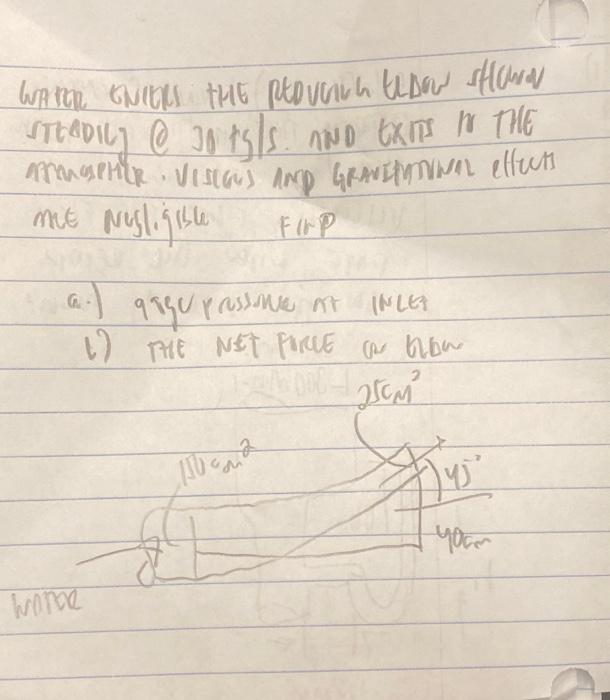 WATER ENTERS THE REDUCING ELBOW SHOWN
STEADILY @ 30 kg/s. AND EXITS TO THE
ATMOSPHER. VISCOUS AND GRAVITATIONAL effects
ARE Negligible FIND
a.) gage pressure AT INLET
b) THE NET FORCE on ELBOW
25cm²
150cm²
45°
40cm
WATER